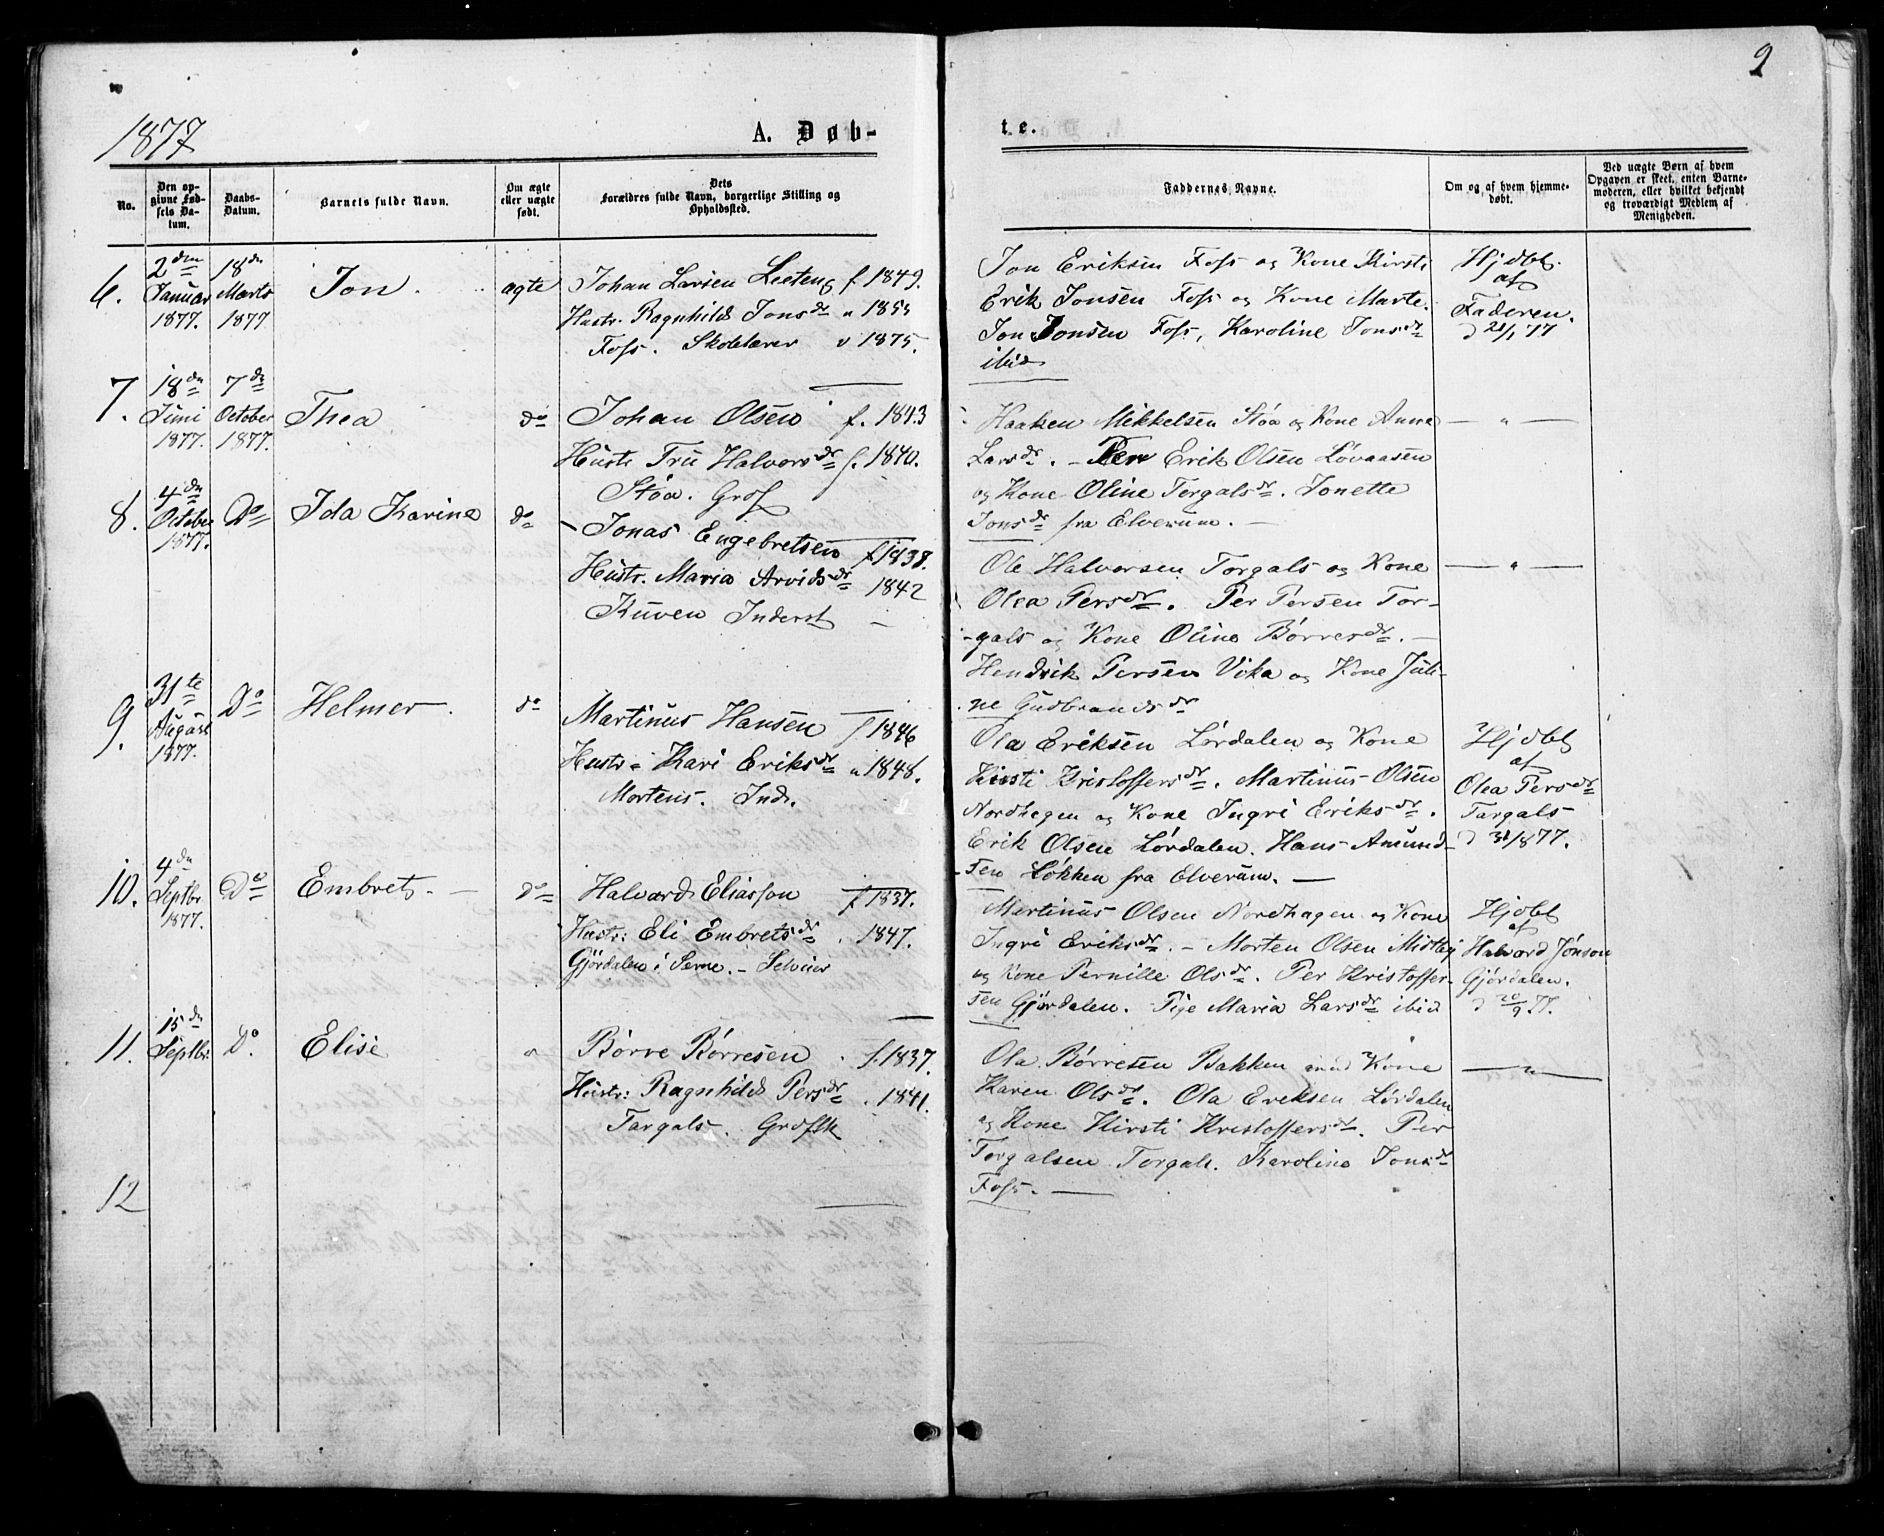 2
1877
A. Døb-
te.
No.
Den op-
givne Fød-
sels Da-
tum.
Daabs-
Datum.
Barnets fulde Navn.
Om ægte
eller uægte
født.
Dets
Forældres fulde Navn, borgerlige Stilling og
Opholdssted.
Faddernes Navne.
Om og af hvem hjemme-
døbt.
Ved uægte Børn af hvem
Opgaven er skeet, enten Barne-
moderen, eller hvilket bekjendt
og troværdigt Medlem af
Menigheden.
6.
2den
Januar
1877.
18dn
Marts
1877
Jon.
ægte
Johan Larsen f 1849.
Hustr. Ragnhild Jonsdr " 1855
Foss. Skolelærer v 1875.
Jon Eriksen Foss og Kone Kirsti
Erik Jonsen Foss og Kone Marte.
Jon Jonsen Foss, Karoline Jonsdr
ibid
Hjdbt.
af
Faderen.
7.
18dn
Juni
1877.
7de
October
1877.
Thea
do
Johan Olsen f. 1843
Hustr Tru Halvorsdr f. 1840.
Støa. Grdf
Haaken Mikkelsen Støa og Kone Anne
Larsdr. - Erik Olsen Løvaasen
og Kone Oline Torgalsdr. Jonette
Jonsdr fra Elverum. -
- " -
8.
4dn
October
1877.
Do
Ida Karine
do
Jonas Engebretsen f 1838.
Hustr. Maria Arvidsdr 1842
Kuven Inderst -
Ole Halvorsen Torgals og Kone
Olea Persdr. Per Persen Tor-
gals og Kone Oline Børresdr. -
Hendrik Persen Vika og Kone Juli-
ne Gudbrandsdr
- " -
9.
31te
August
1877.
Do
Helmer.
do
Martinus Hansen f 1846
Hustr - Kari Eriksdr " 1848.
Mortens. Ind.
Ola Eriksen Lørdalen og Kone
Kirsti Kristoffersdr. Martinus Olsen
Nordhagen og Kone Ingri Eriksdr.
Erik Olsen Lørdalen. Hans Amund-
sen Løkken fra Elverum. -
Hjdbt
af
Olea Persdr
Targals
d 31/8 77.
10.
4dn
Septbr
1877.
Do
Embret. -
do
Halvard Eliasson f 1837.
Hustr: Eli Embretsdr . 1847.
Gjördalen i Serne. - Selveier
Martinus Olsen Nordhagen og Kone
Ingri Eriksdr. - Morten Olsen Midtlig
og Kone Pernille Olsdr. Per Kristoffer-
sen Gjördalen. Pige Maria Larsdr ibid
Hjdbt
af
Halvord Jönson
Gjördalen.
d 20/9 77.
11.
15dn
Septbr
Do.
Elise
Børre Børresen . f. 1837.
Hustr: Ragnhild Persdr . 1841.
Targals. Grdfsk
Ola Børresen Bakken med Kone
Karen Olsdr. Ola Eriksen Lørdalen
og Kone Kirsti Kristoffersdr. Per
Torgalsen Torgals. Karoline Jonsdr
Foss. -
- " -
12